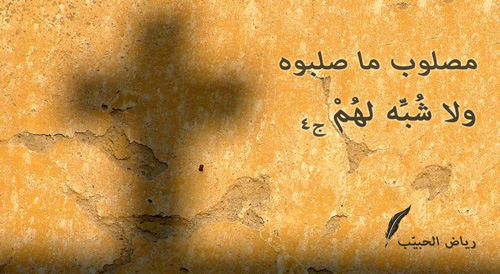 مصلوب ما صلبوه
ولا شُبِّه لهُمْ ج٤
رياض الحبيّب